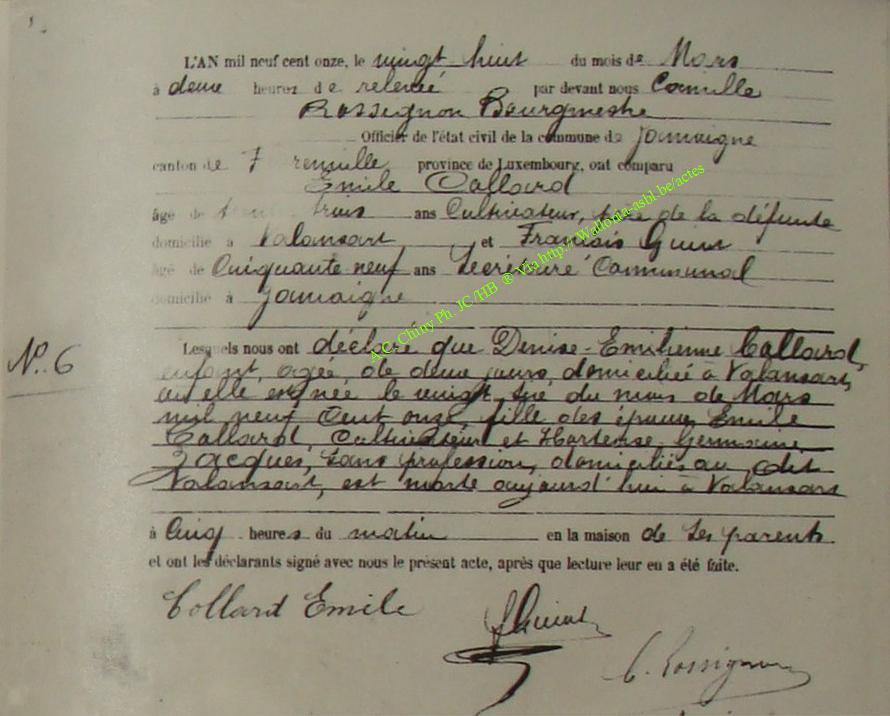 L'AN mil neuf cent onze, le vingt huit du mois de Mars
à deux heures de relevée par devant nous Camille
Rossignon Bourgmestre
Officier de l'état civil de la commune de Jamoigne
canton de Florenville province de Luxembourg, ont comparu
Emile Collard
âgé de trente trois ans Cultivateur, père de la défunte
domicilié à Valansart et François
âgé de Cinquante neuf ans Secrétaire Communal
domicilié à Jamoigne
N°. 6
Lesquels nous ont déclaré que Denise-Emilienne Collard,
enfant, agée de deux jours, domiciliée à Valansart,
où elle est née le vingt six du mois de Mars
mil neuf Cent onze, fille des époux Emile
Collard, Cultivateur et Hortense, Germaine
Jacques, sans profession, domiciliés au dit
Valansart, est morte aujourd'hui à Valansart
à Cinq heures du matin en la maison de ses parents
et ont les déclarants signé avec nous le présent acte, après que lecture leur en a été faite.
Collard Emile
C. Rossignon
A.C. Chiny Ph. JC/HB ® Via http://Wallonia-asbl.be/actes